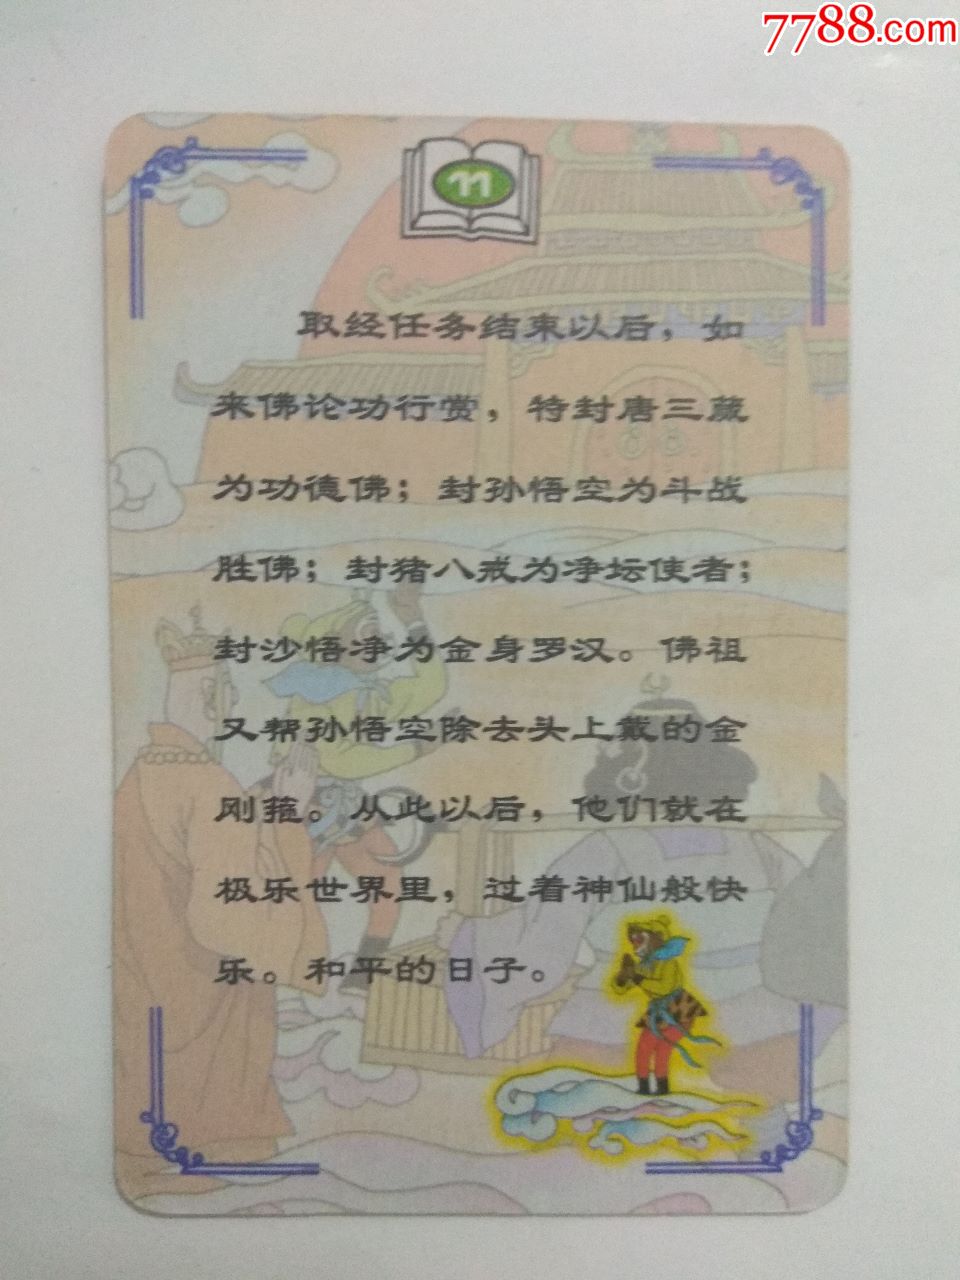 7788.com
11
取经任务结束以后，如
来佛论功行赏，特封唐三藏
为功德佛；封孙悟空为斗战
胜佛；封猪八戒为净坛使者；
封沙悟净为金身罗汉。佛祖
又帮孙悟空除去头上戴的金
刚箍。从此以后，他们就在
极乐世界里，过着神仙般快
乐。和平的日子。